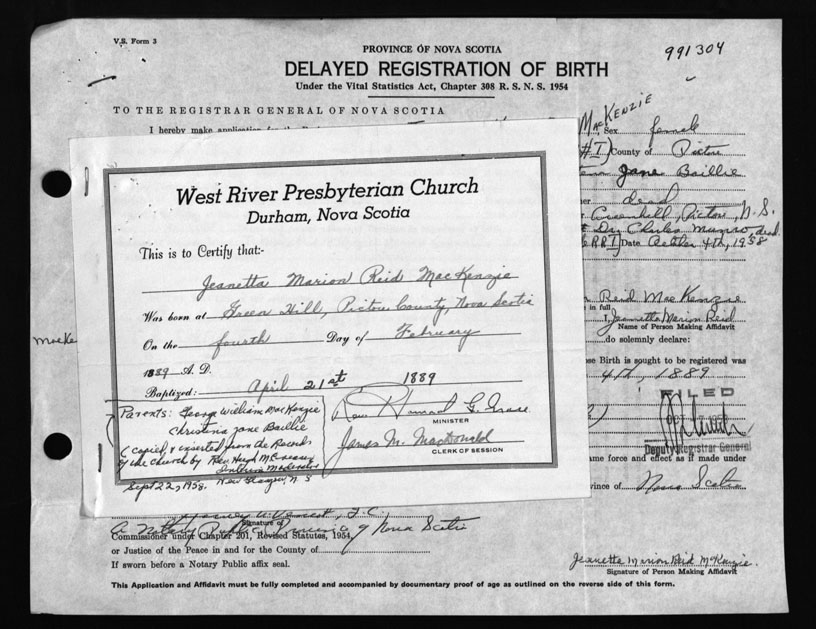 V.S. Form 3
PROVINCE OF NOVA SCOTIA
991304
DELAYED REGISTRATION OF BIRTH
Under the Vital Statistics Act, Chapter 308 R. S. N. S. 1954
TO THE REGISTRAR GENERAL OF NOVA SCOTIA
I hereby make application
MacKenzie Sex female
County of Pictou
Jane Baillie
dead
Greenhill, Pictou, N. S.
Dr. Charles Munro, dead
Date October 4th, 1958
West River Presbyterian Church
Durham, Nova Scotia
This is to Certify that:-
Jeanetta Marion Reid MacKenzie
Was born at Green Hill, Pictou County, Nova Scotia
On the fourth Day of February
1889 A. D.
Baptized: April 21st 1889
Parents: George William MacKenzie
Christina Jane Baillie
(copied & inserted from the Records
of the church by Rev. Hugh
Sept 22, 1958. New Glasgow, N S
MINISTER
James M. MacDonald
CLERK OF SESSION
MacKe
Reid MacKenzie
in full
I, Jeanetta Marion Reid
Name of Person Making Affidavit
do solemnly declare:
se Birth is sought to be registered was
4th, 1889
FILED
Deputy Registrar General
ame force and effect as if made under
vince of Nova Scotia
Signature of
A Notary Public Province of Nova Scotia
Commissioner under Chapter 201, Revised Statutes, 1954,
or Justice of the Peace in and for the County of
If sworn before a Notary Public affix seal.
Jeanetta Marion Reid McKenzie
Signature of Person Making Affidavit
This Application and Affidavit must be fully completed and accompanied by documentary proof of age as outlined on the reverse side of this form.